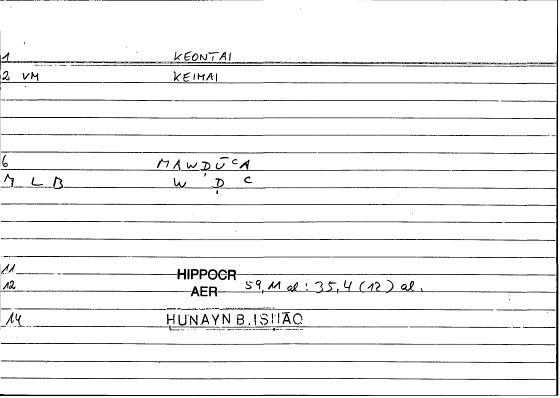 1 KEONTAI
2 VM KEIMAI
6 MAWḌŪʿA
M L B W Ḍ ʿ
11 HIPPOCR
12 AER 59,11 al : 35,4 (12) al.
14 ḤUNAYN B. ISḤĀQ